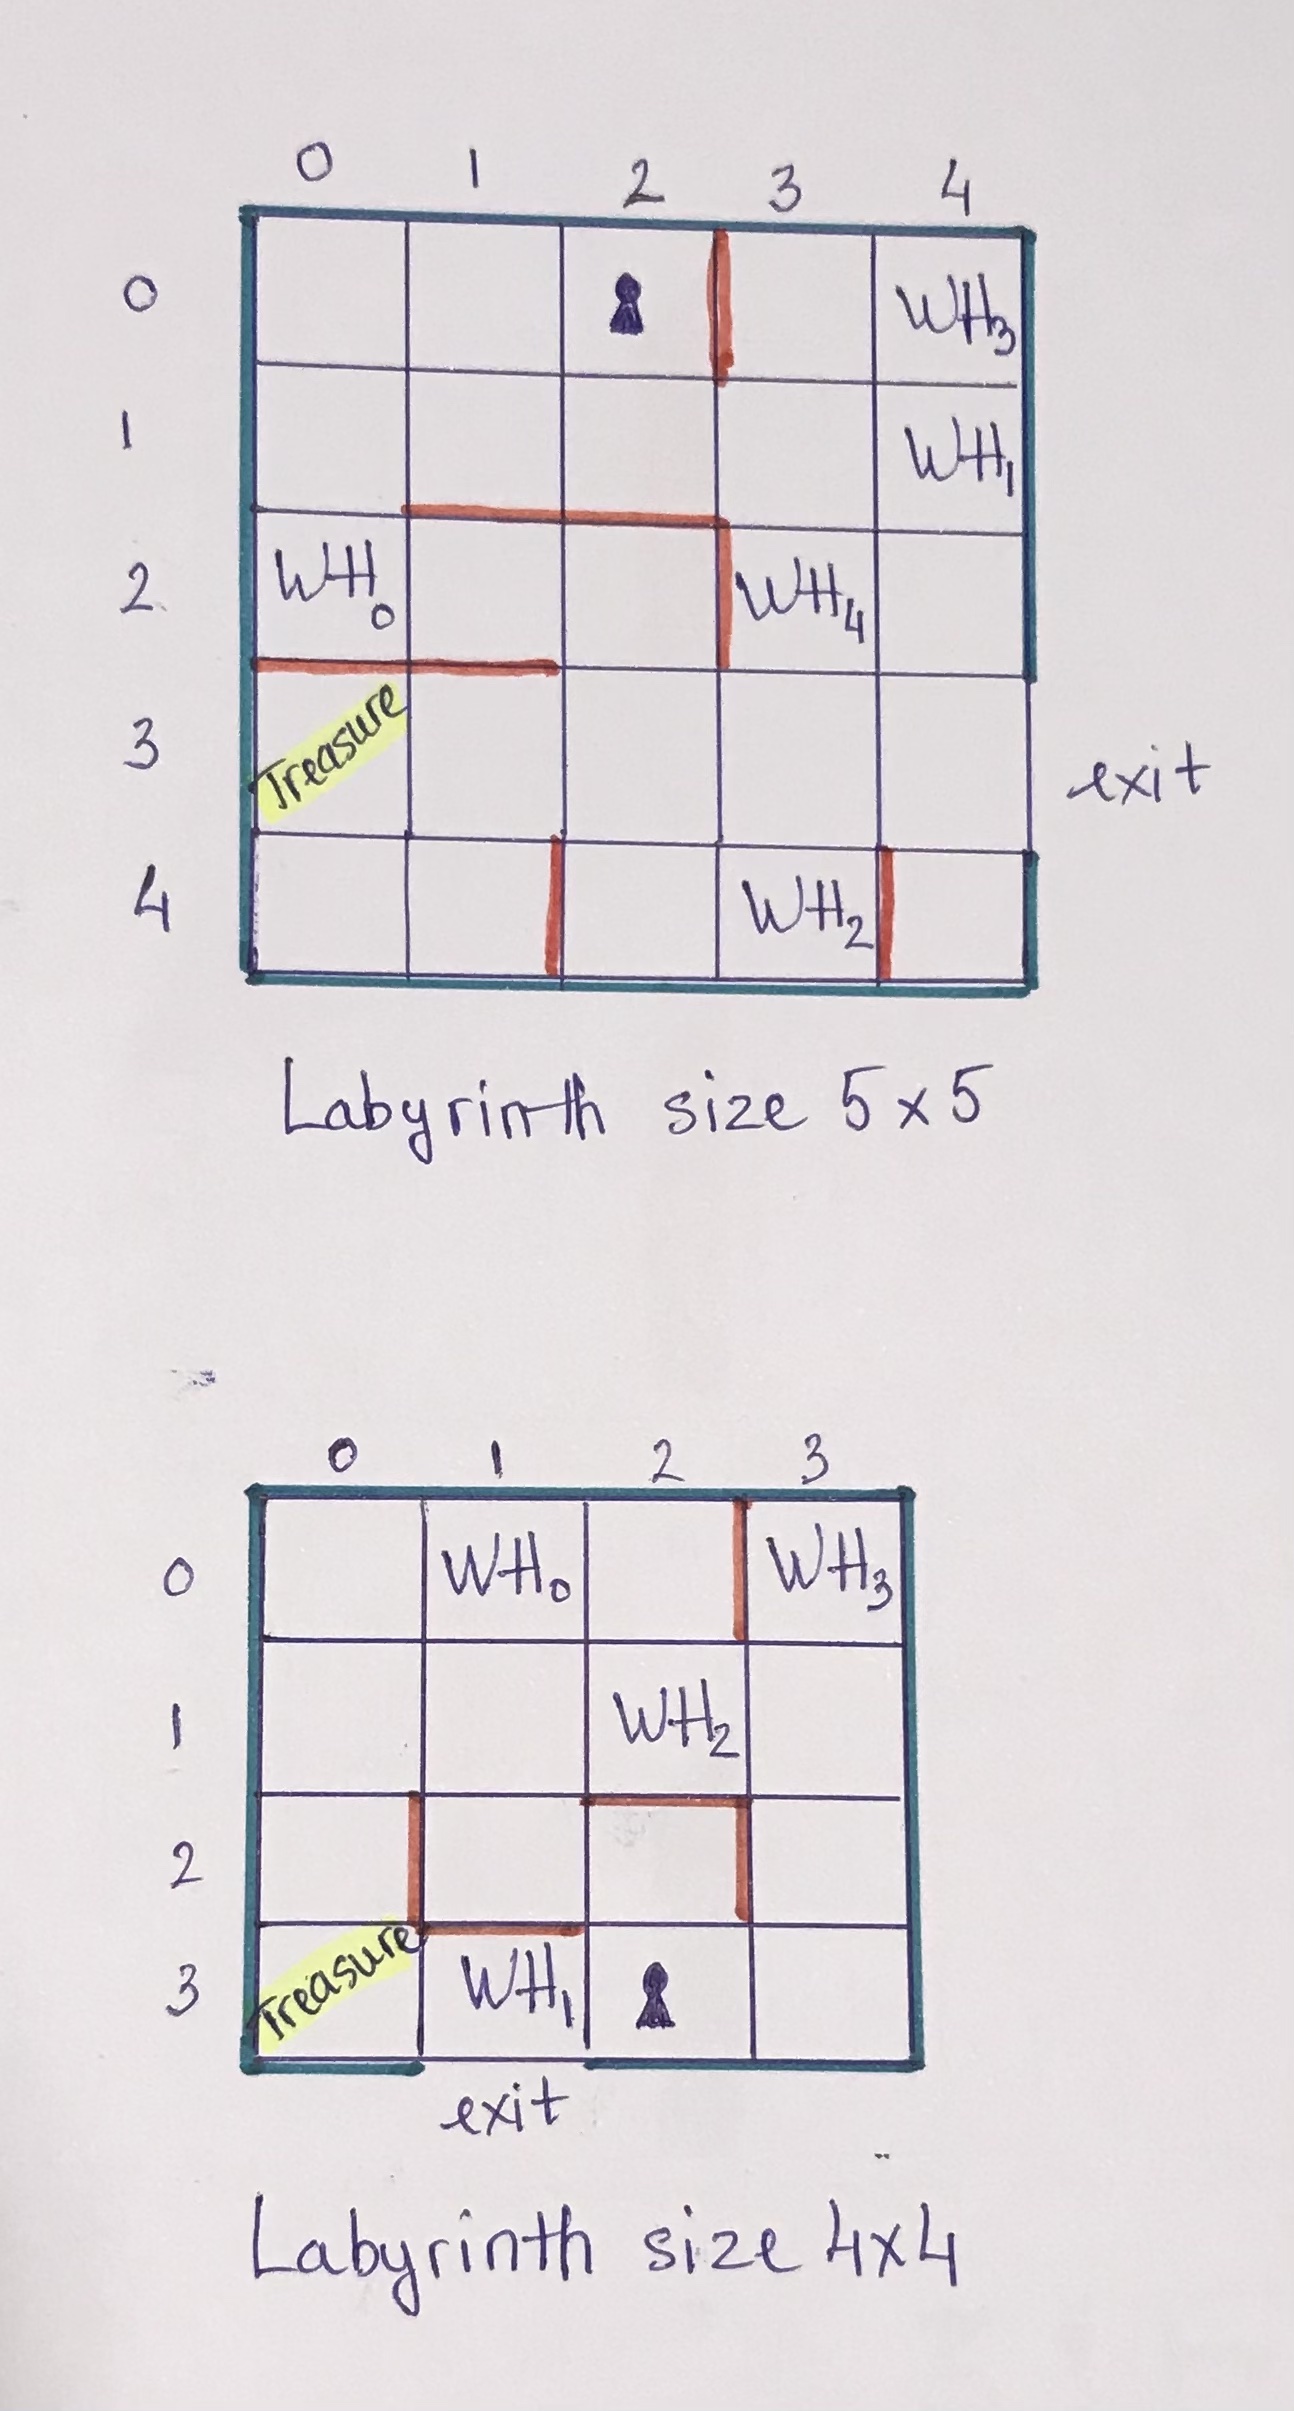 0 1 2 3 4
0 WH3
1 WH1
2 WH0 WH4
3 Treasure exit
4 WH2
Labyrinth size 5x5
0 1 2 3
0 WH0 WH3
1 WH2
2
3 Treasure WH1
exit
Labyrinth size 4x4